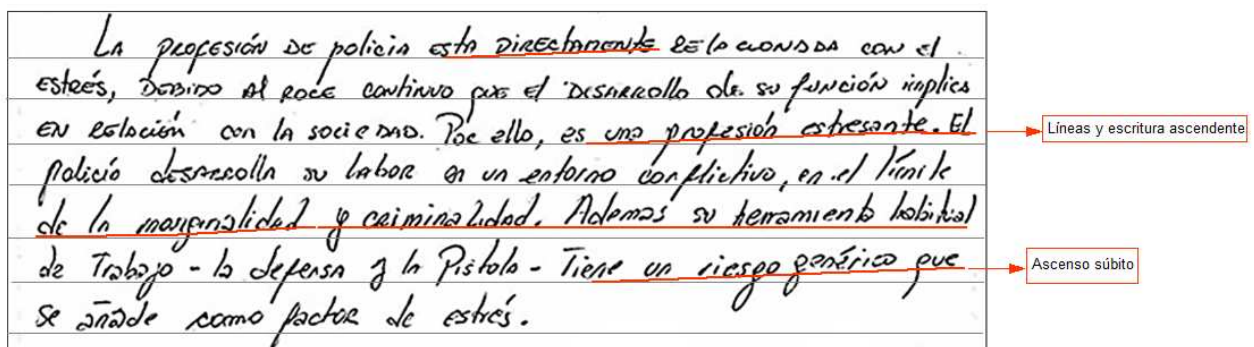 La profesión de policia esta directamente relacionada con el
estrés, debido al roce continuo que el desarrollo de su función implica
en relación con la sociedad. Por ello, es una profesión estresante. El
policia desarrolla su labor en un entorno conflictivo, en el límite
de la marginalidad y criminalidad. Ademas su herramienta habitual
de Trabajo - la defensa y la Pistola - Tiene un riesgo genérico que
se añade como factor de estrés.
Líneas y escritura ascendente
Ascenso súbito